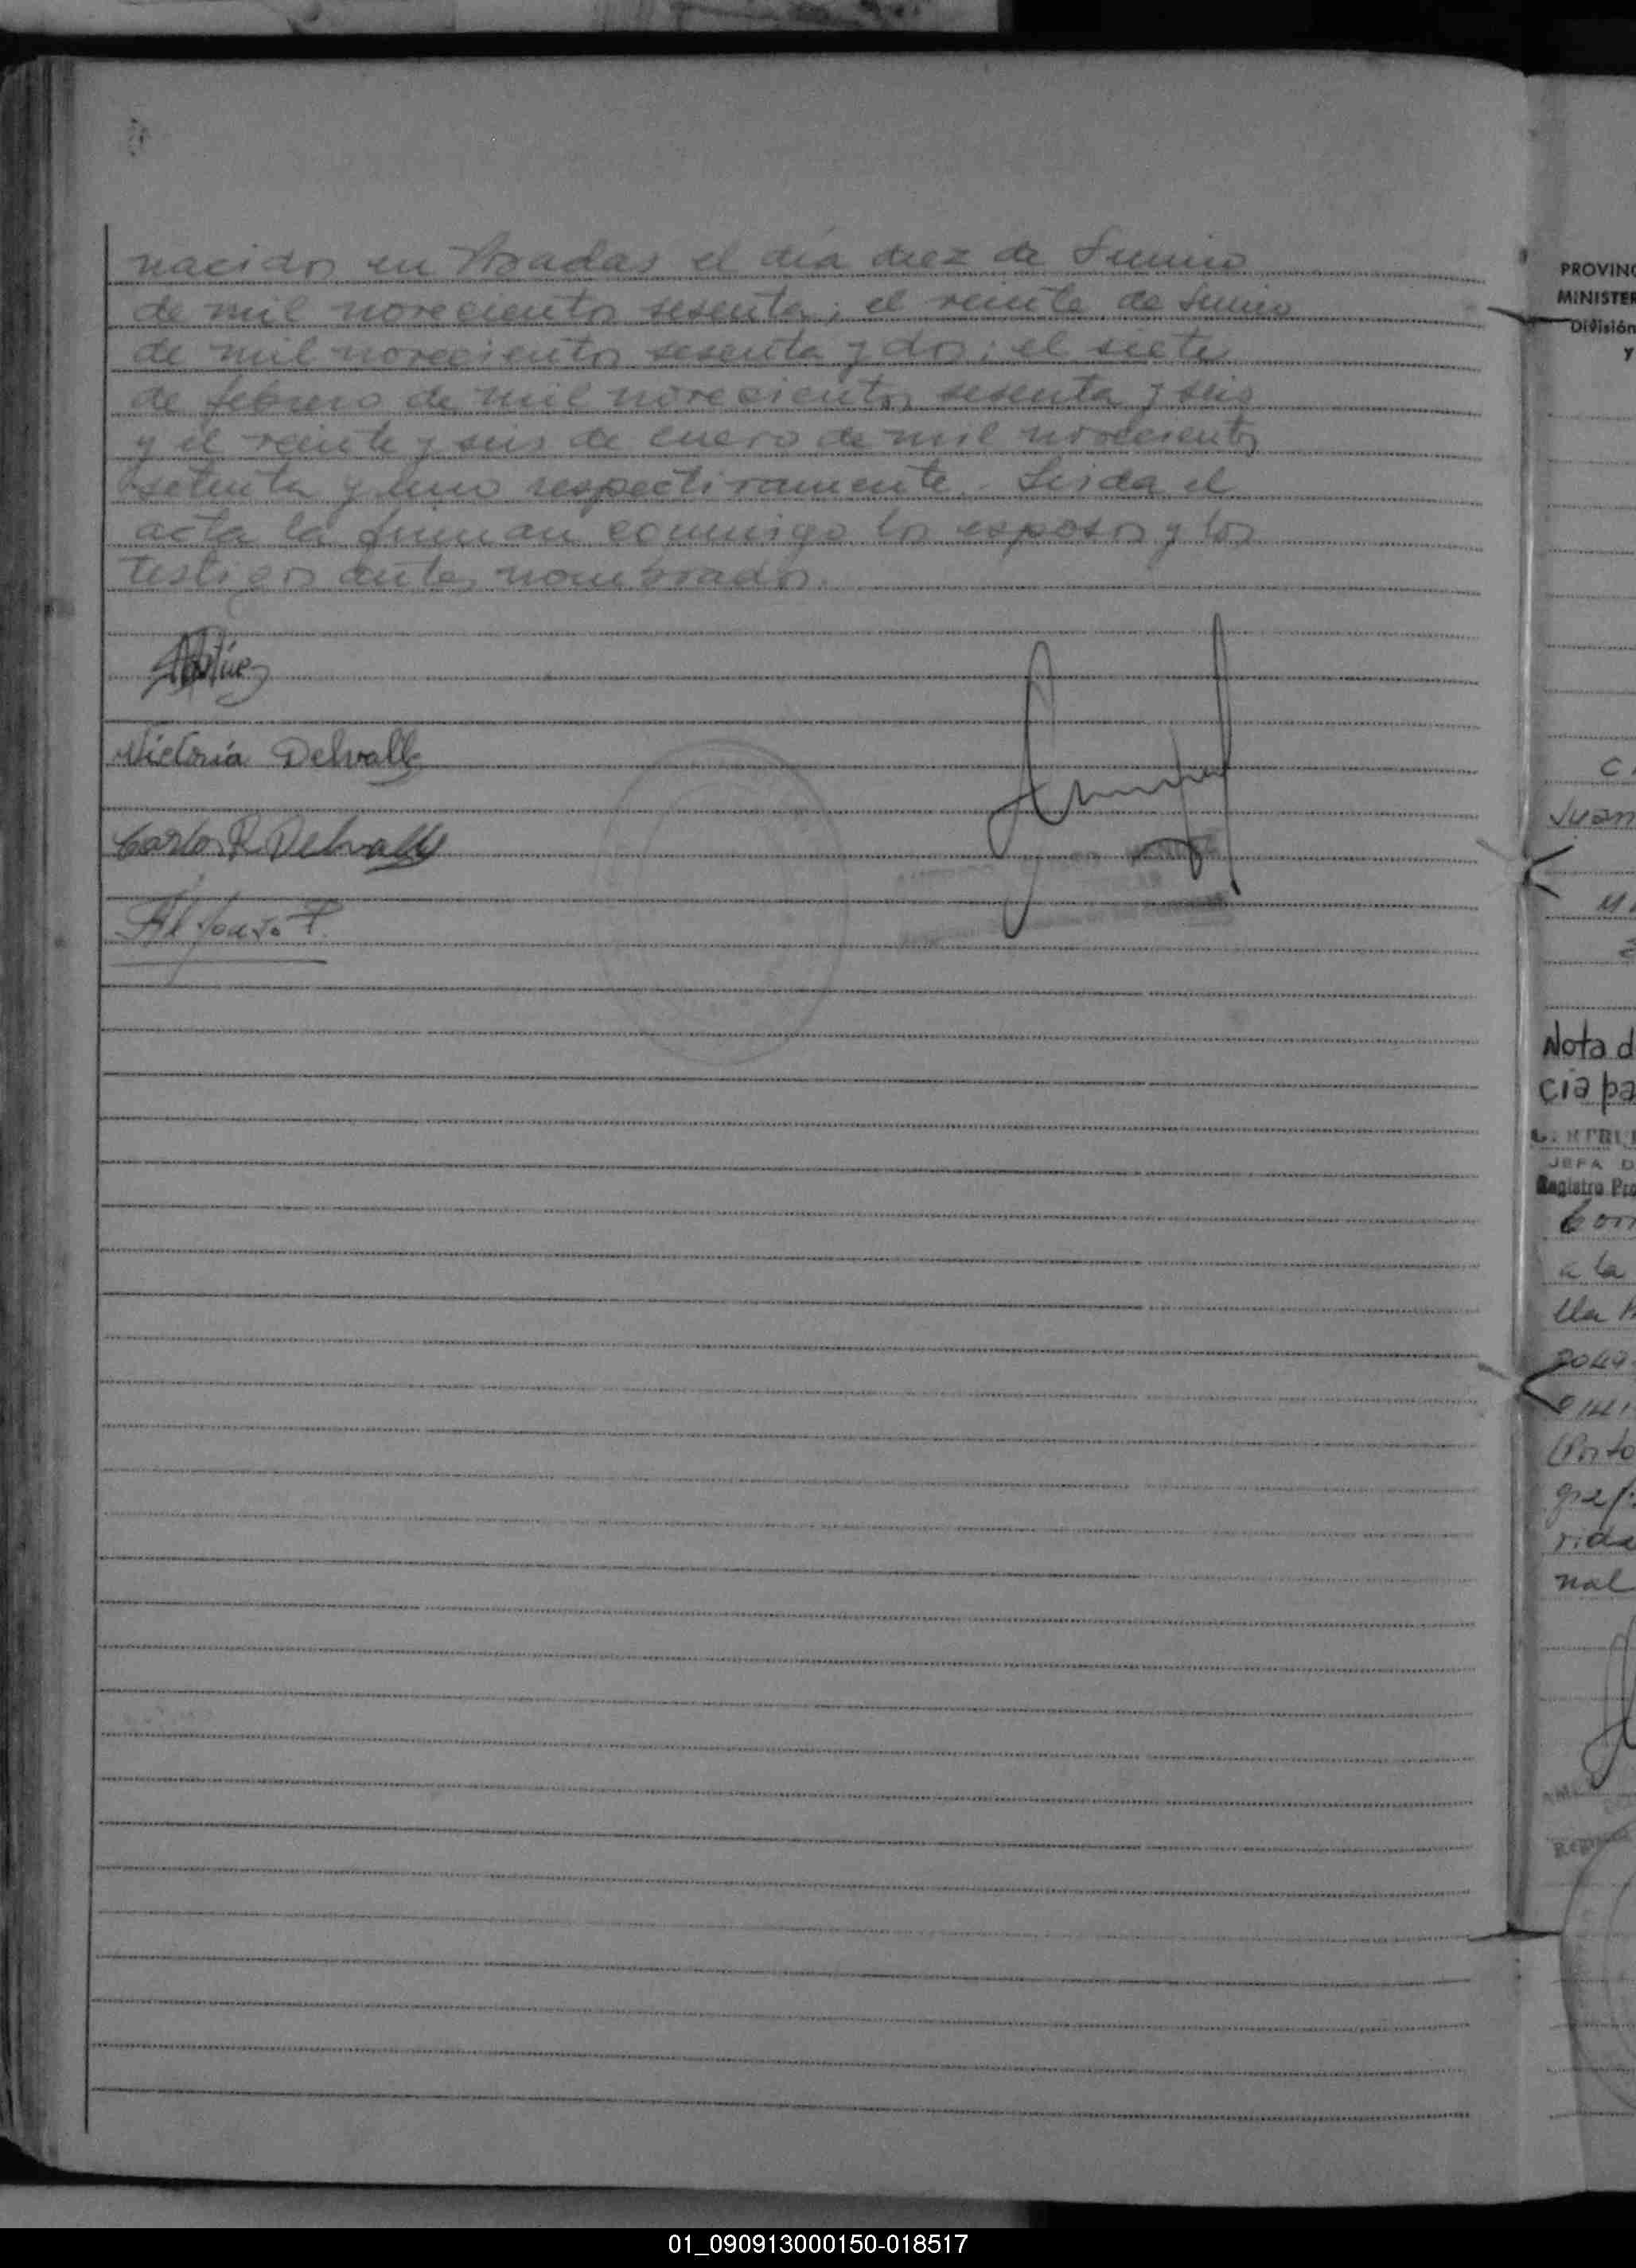 nacidos en Posadas el día diez de Junio
de mil novecientos sesenta; el veinte de Junio
de mil novecientos sesenta y dos; el siete
de febrero de mil novecientos sesenta y seis
y el veinte y seis de enero de mil novecientos
setenta y uno respectivamente. Leida el
acta la firman conmigo los esposos y los
testigos antes nombrados.
Victoria Delvalle
Carlos R. Delvalle
Alfonso F.
PROVINC
MINISTER
División
y
Juan
Nota d
cia pa
JEFA D
Registro Pro
a la
rida
nal
01_090913000150-018517